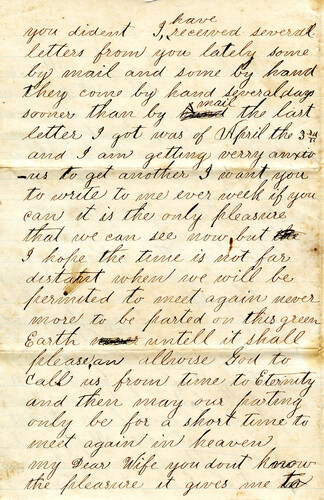 you dident I have received several
letters from you lately some
by mail and some by hand
they come by hand several days
sooner than by mail the last
letter I got was of April the 3rd
and I am getting verry anxto
-us to get another I want you
to write to me ever week if you
can it is the only pleasure
that we can see now but
I hope the time is not far
distant when we will be
permited to meet again never
more to be parted on this green
Earth untell it shall
please an allwise God to
Call us from time to Eternity
and then may our parting
only be for a short time to
meet again in heaven
my Dear Wife you dont know
the pleasure it gives me to